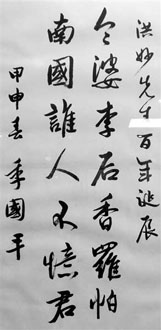 洪妙先生百年誕辰
令婆李后香羅帕
南國誰人不憶君
甲申春 季國平